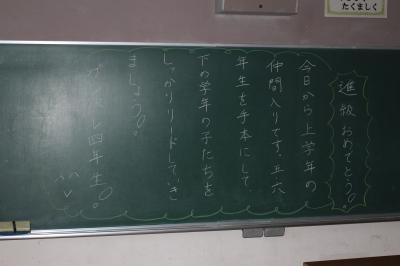 進級おめでとう。
今日から上学年の
仲間入りです。五六
年生を手本にして
下の学年の子たちを
しっかりリードしていき
ましょう。
たくましく